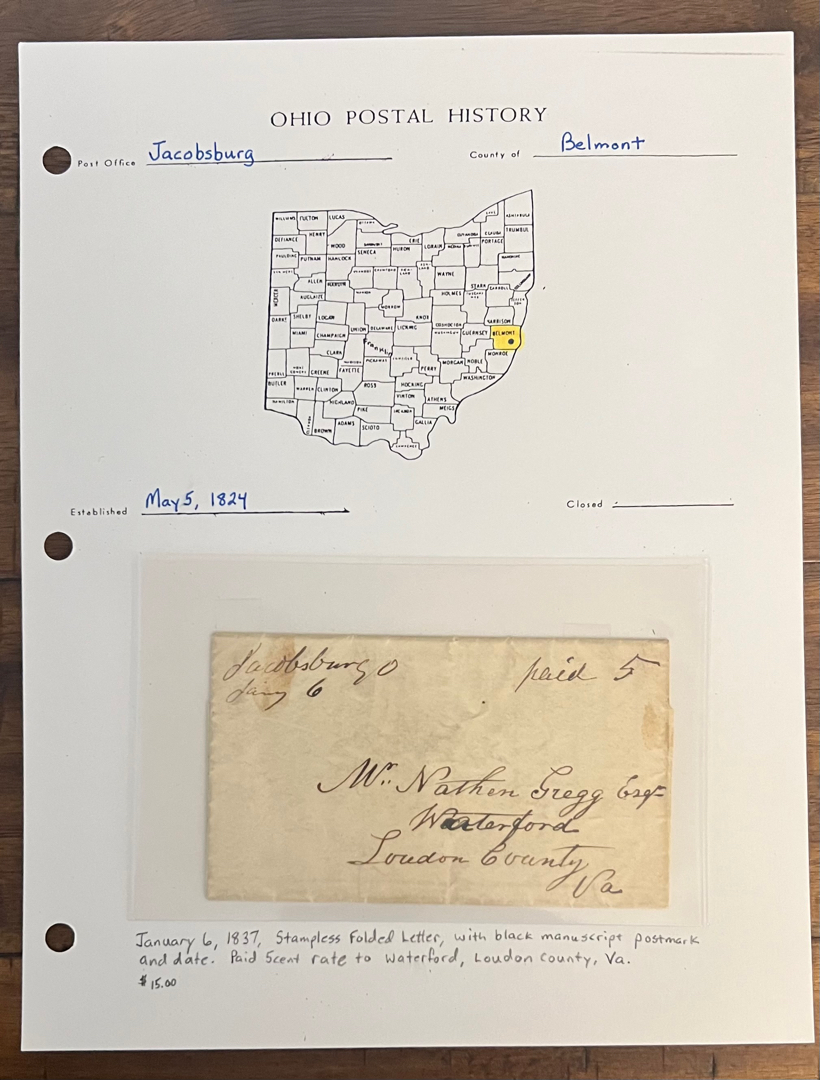 OHIO POSTAL HISTORY
Post Office Jacobsburg County of Belmont
WILLIAMS FULTON LUCAS
DEFIANCE HENRY WOOD
SENECA HURON ERIE LORAIN
GEAUGA PORTAGE TRUMBUL
PAULDING PUTNAM HANCOCK
ALLEN WAYNE STARK CARROLL
MERCER AUGLAIZE HOLMES
MORROW KNOX
DARKE SHELBY LOGAN HARRISON
MIAMI CHAMPAIGN UNION DELAWARE LICKING COSHOCTON GUERNSEY BELMONT
CLARK Franklin MONROE
PREBLE GREENE FAYETTE PERRY MORGAN NOBLE
BUTLER WARREN CLINTON ROSS HOCKING WASHINGTON
HAMILTON HIGHLAND PIKE VINTON ATHENS
BROWN ADAMS SCIOTO GALLIA MEIGS
Established May 5, 1824 Closed
Jacobsburg O paid 5
Jany 6
Mr. Nathen Gregg Esqr
Waterford
Loudon County
Va
January 6, 1837, Stampless Folded Letter, with black manuscript postmark
and date. Paid 5cent rate to Waterford, Loudon County, Va.
$15.00